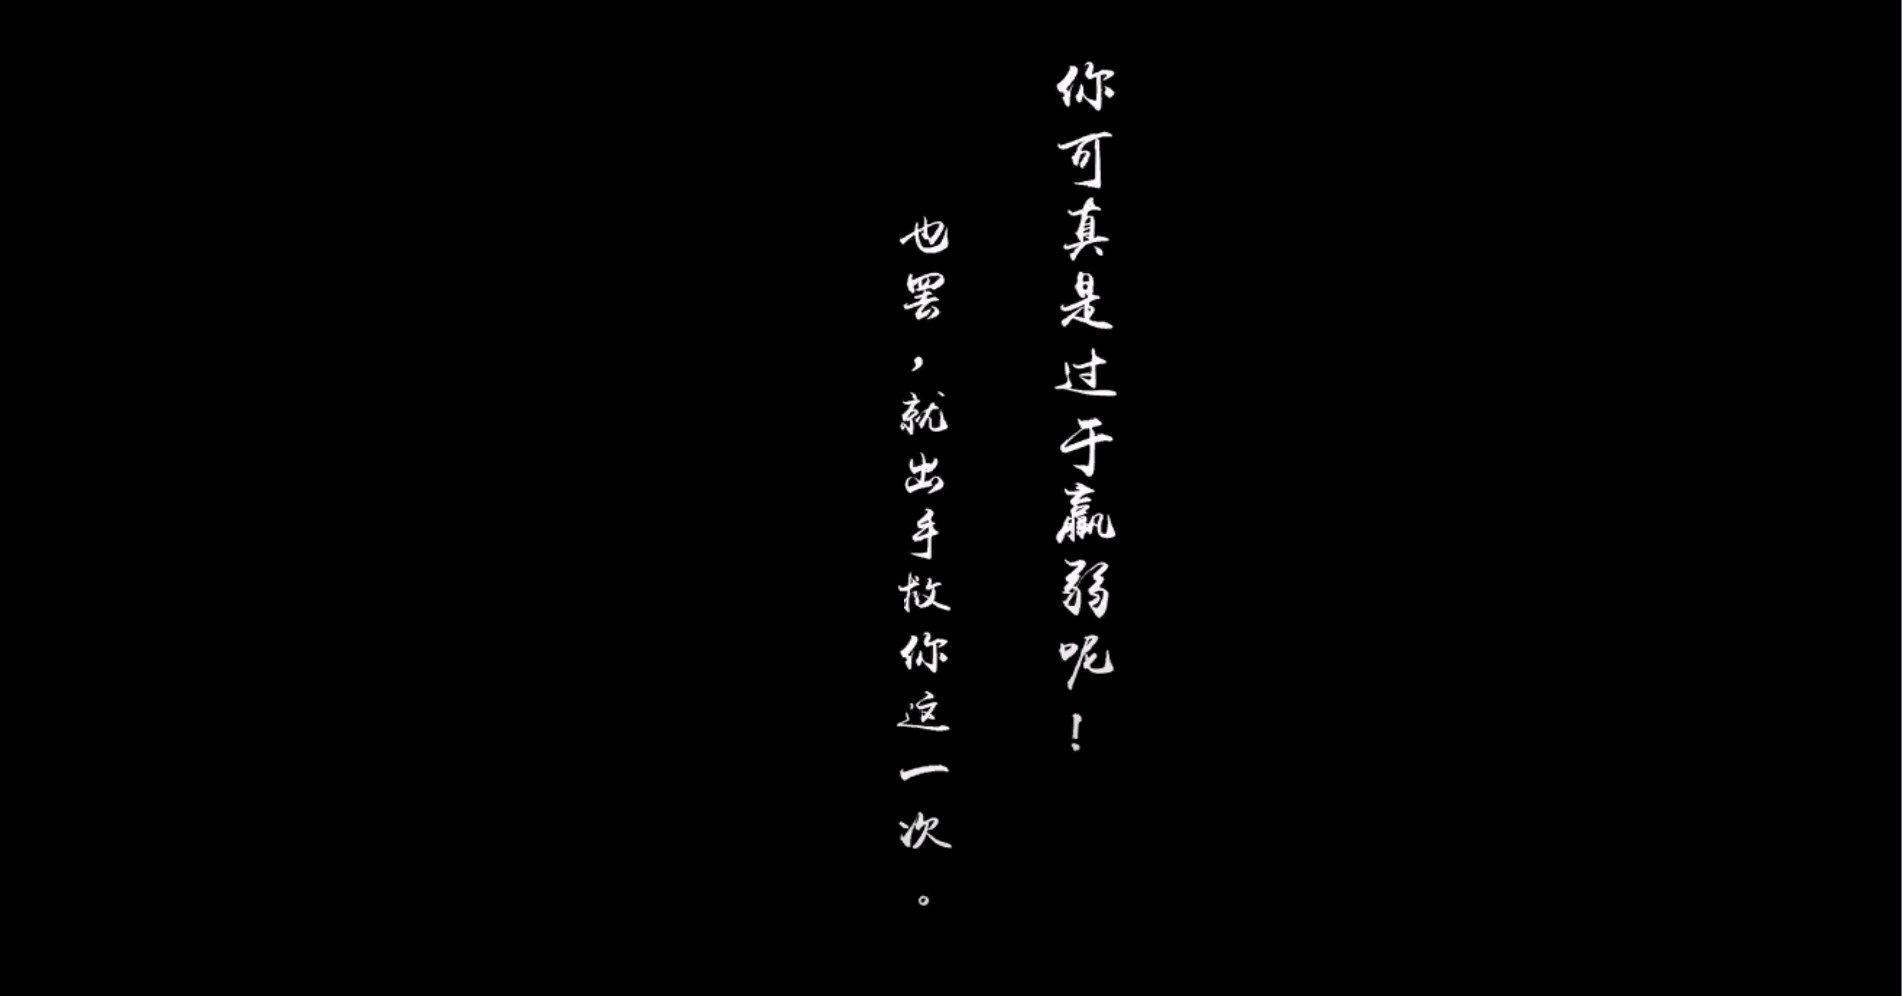 你可真是过于羸弱呢！
也罢，就出手救你这一次。